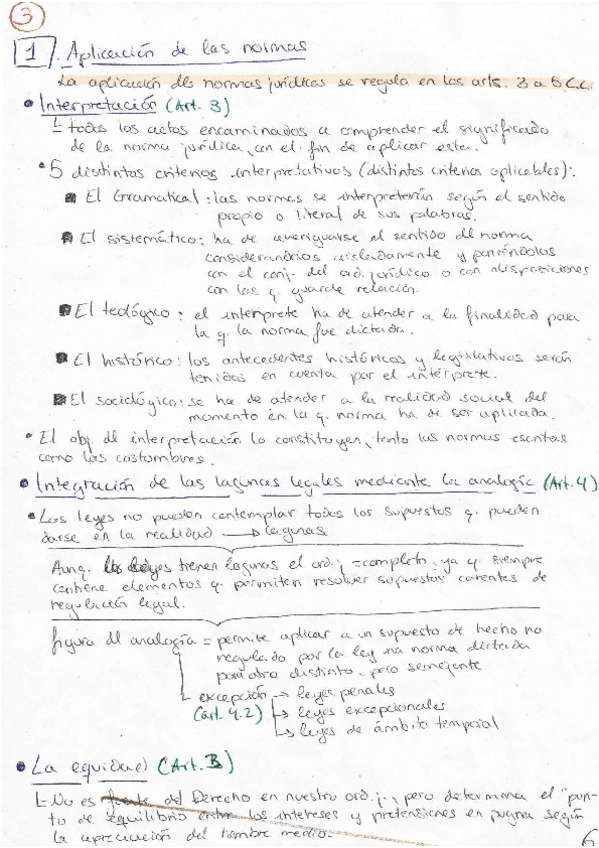 3
1. Aplicación de las normas
La aplicación dls normas jurídicas se regula en los arts. 3 a 5 C.C.
• Interpretación (Art. 3)
└ todos los actos encaminados a comprender el significado
de la norma jurídica, con el fin de aplicar esta.
• 5 distintos criterios interpretativos (distintos criterios aplicables):
■ El Gramatical: las normas se interpretarán según el sentido
propio o literal de sus palabras.
■ El sistemático: ha de averiguarse el sentido dl norma
considerándolos aisladamente y poniéndolos
con el conj. del ord. jurídico o con disposiciones
con las q. guarde relación.
■ El teológico: el interprete ha de atender a la finalidad para
la q. la norma fue dictada.
■ El histórico: los antecedentes históricos y legislativos serán
tenidos en cuenta por el intérprete.
■ El sociológico: se ha de atender a la realidad social del
momento en la q. norma ha de ser aplicada.
• El obj. dl interpretación lo constituyen, tanto las normas escritas
como las costumbres.
• Integración de las lagunas legales mediante la analogía (Art. 4)
• Las leyes no pueden contemplar todos los supuestos q. pueden
darse en la realidad → lagunas
Aunq. las leyes tienen lagunas el ord. j = completo, ya q siempre
contiene elementos q. permiten resolver supuestos carentes de
regulación legal.
figura dl analogía = permite aplicar a un supuesto de hecho no
regulado por la ley una norma dictada
para otro distinto, pero semejante
└ excepción → leyes penales
(art. 4.2) → leyes excepcionales
→ leyes de ámbito temporal
• La equidad (Art. 3)
└ No es fuente del Derecho en nuestro ord. j., pero determina el "pun-
to de equilibrio entre los intereses y pretensiones en pugna según
la apreciación del hombre medio.
6